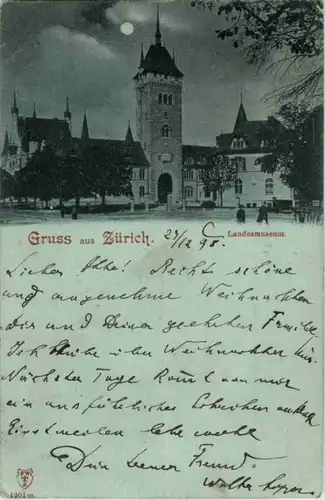 Gruss aus Zürich.
23/12 98.
Landesmuseum.
Lieber Otto! Recht schöne
und angenehme Weihnachten
Dir und Deiner geehrten Familie
Ich bleibe über Weihnachten hier.
Nächster Tage kommt von mir
ein ausführliches Schreiben
Einstweilen lebe wohl
Dein treuer Freund
Walter
1901 m.